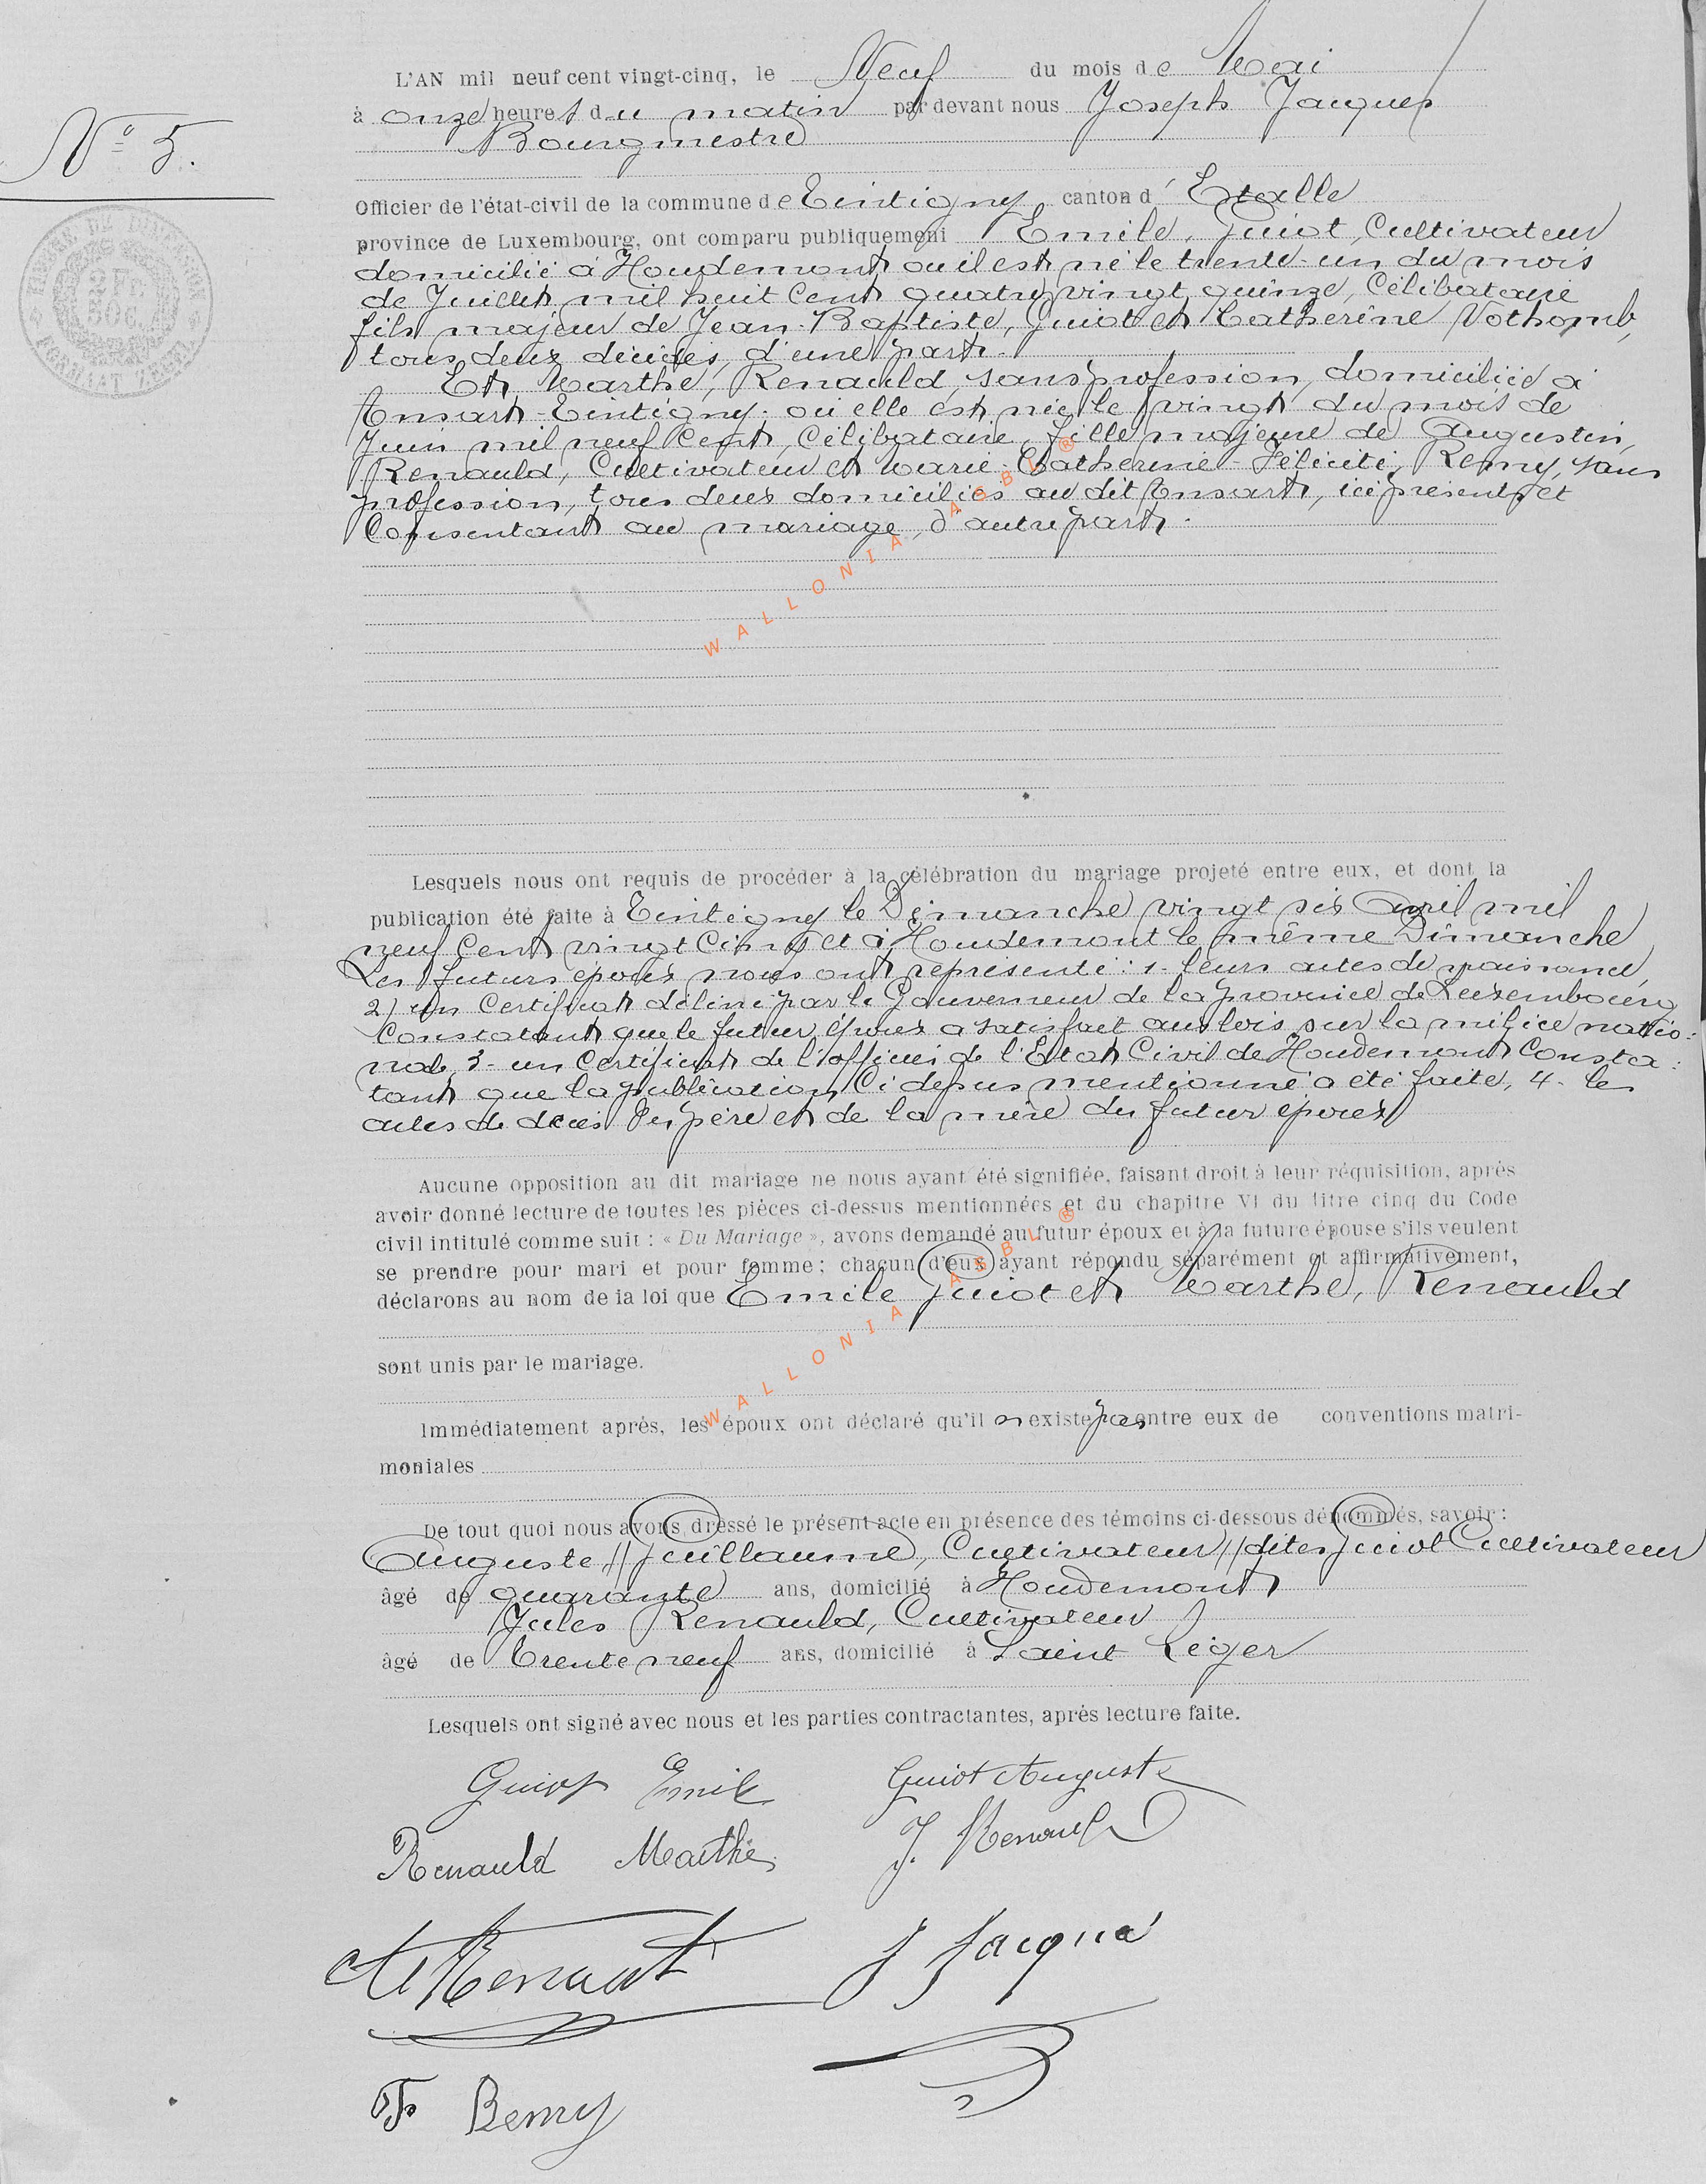 L'AN mil neuf cent vingt-cinq, le Neuf du mois de Mai
à onze heures du matin par devant nous Joseph Jacques
Bourgmestre
N° 5.
Officier de l'état-civil de la commune de Tintigny canton d'Etalle
province de Luxembourg, ont comparu publiquement Emile, Guiot, Cultivateur
domicilié à Houdemont où il est né le trente-un du mois
de Juillet mil huit cent quatre vingt quinze, Célibataire
fils majeur de Jean-Baptiste, Guiot et Catherine Nothomb,
tous deux décédés, d'une part.
Et Marthe, Renauld, sans profession, domiciliée à
Ansart-Tintigny. où elle est née le vingt du mois de
Juin mil neuf cent, Célibataire, fille majeure de Augustin,
Renauld, Cultivateur et Marie-Catherine-Félicité, Remy, sans
profession, tous deux domiciliés au dit Ansart, ici présents et
Consentant au mariage, d'autre part.
WALLONIA ASBL ®
Lesquels nous ont requis de procéder à la célébration du mariage projeté entre eux, et dont la
publication été faite à Tintigny le Dimanche vingt six Avril mil
neuf cent vingt Cinq et à Houdemont le même Dimanche
Les futurs époux nous ont représenté: 1- leurs actes de naissance,
2) un Certificat délivré par le Gouverneur de la province de Luxembourg
Constatant que le futur époux a satisfait aux lois sur la milice natio:
nale, 3- un Certificat de l'officier de l'Etat Civil de Houdemont Consta:
tant que la publication Ci depus mentionné a été faite, 4- les
actes de décès du père et de la mère du futur époux
Aucune opposition au dit mariage ne nous ayant été signifiée, faisant droit à leur réquisition, après
avoir donné lecture de toutes les pièces ci-dessus mentionnées et du chapitre VI du titre cinq du Code
civil intitulé comme suit : « Du Mariage », avons demandé au futur époux et à la future épouse s'ils veulent
se prendre pour mari et pour femme; chacun d'eux ayant répondu séparément et affirmativement,
déclarons au nom de la loi que Emile Guiot et Marthe, Renauld
sont unis par le mariage.
WALLONIA ASBL ®
Immédiatement après, les époux ont déclaré qu'il n'existe pas entre eux de conventions matri-
moniales
De tout quoi nous avons dressé le présent acte en présence des témoins ci-dessous dénommés, savoir :
Auguste // Guillaume, Cultivateur // dites Guiot Cultivateur
âgé de quarante ans, domicilié à Houdemont
Jules Renauld, Cultivateur
âgé de Trente neuf ans, domicilié à Saint Léger
Lesquels ont signé avec nous et les parties contractantes, après lecture faite.
Guiot Emile Guiot Auguste
Renauld Marthe J. Renauld
J Jacques
Remy